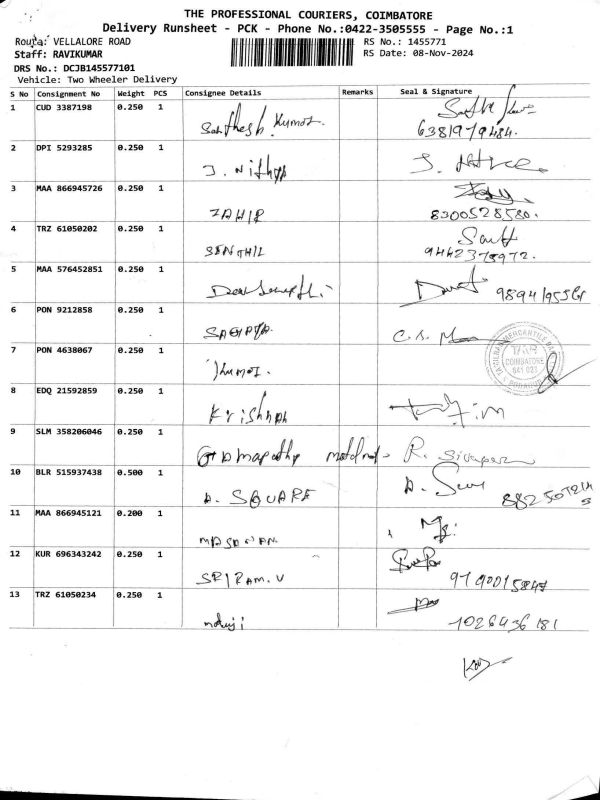 THE PROFESSIONAL COURIERS, COIMBATORE
Delivery Runsheet - PCK - Phone No.:0422-3505555 - Page No.:1
Route: VELLALORE ROAD
RS No.: 1455771
Staff: RAVIKUMAR
RS Date: 08-Nov-2024
DRS No.: DCJB145577101
Vehicle: Two Wheeler Delivery
S No Consignment No Weight PCS Consignee Details Remarks Seal & Signature
1 CUD 3387198 0.250 1
Kumar
6381979484.
2 DPI 5293285 0.250 1
J. Nithya
3 MAA 866945726 0.250 1
ZAHIR
8300528580.
4 TRZ 61050202 0.250 1
SENTHIL
9442378972.
5 MAA 576452851 0.250 1
6 PON 9212858 0.250 1
7 PON 4638067 0.250 1
COIMBATORE
641 023
8 EDQ 21592859 0.250 1
Krishnan
9 SLM 358206046 0.250 1
R.
10 BLR 515937438 0.500 1
A. SQUARE
11 MAA 866945121 0.200 1
12 KUR 696343242 0.250 1
SRIRAM.V
13 TRZ 61050234 0.250 1